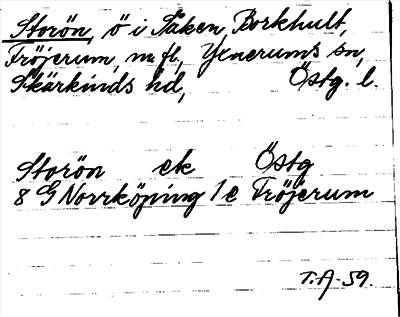 Storön, ö i Täken, Borkhult,
Fröjerum, m.fl., Yxnerums sn,
Skärkinds hd, Östg. l.
Storön ek Östg
8 G Norrköping 1 e Fröjerum
T.A-59.